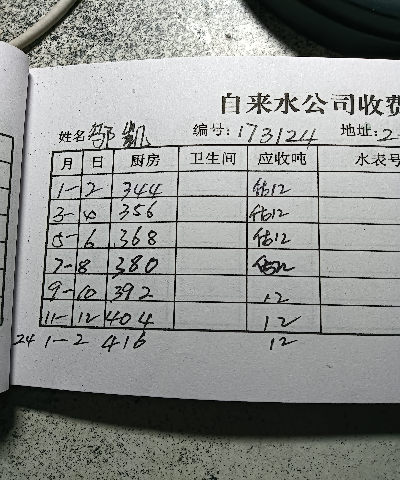 自来水公司收费
姓名 鄂凯 编号：173124 地址：2-
月 日 厨房 卫生间 应收吨 水表号
1-2 344 估12
3-4 356 估12
5-6 368 估12
7-8 380 估12
9-10 392 12
11-12 404 12
24 1-2 416 12